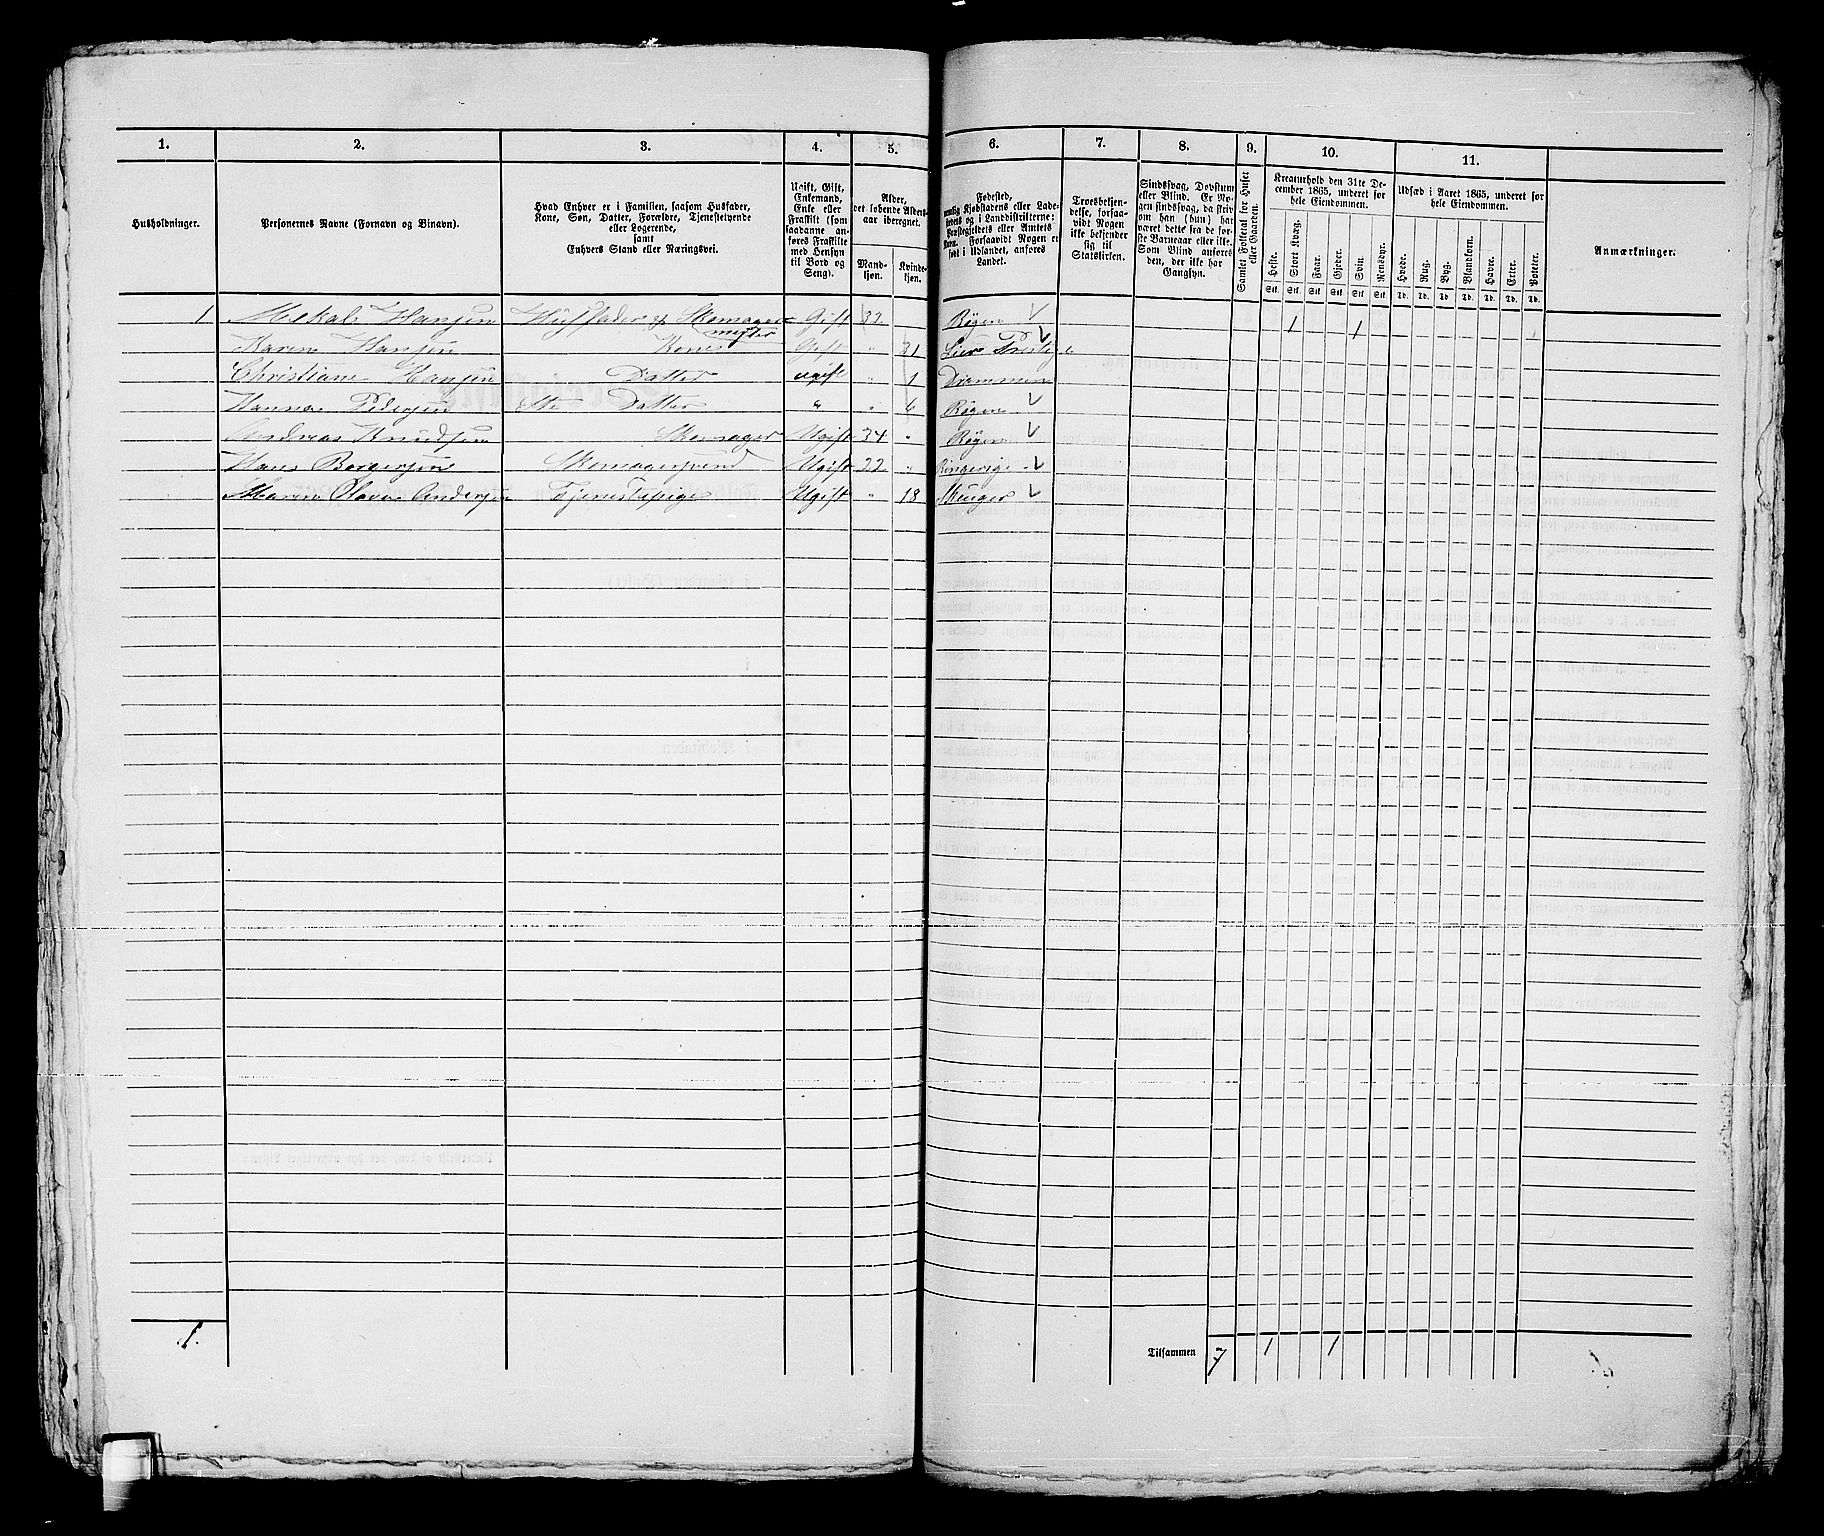 1. 2. 3. 4. 5. 6. 7. 8. 9. 10. 11.
Husholdninger.
Personernes Navne (Fornavn og Binavn).
Hvad Enhver er i Familien, saasom Husfader,
Kone, Søn, Datter, Forældre, Tjenestetyende
eller Logerende,
samt
Enhvers Stand eller Næringsvei.
Ugift, Gift,
Enkemand,
Enke eller
Fraskilt (som
saadanne an-
føres Fraskilte
med Hensyn
til Bord og
Seng).
Alder,
det løbende Alders-
aar iberegnet.
Mand-
kjøn.
Kvinde-
kjøn.
Fødested,
nemlig Kjøbstadens eller Lade-
stedets
og i Landdistrikterne:
Præstegjeldets eller Amtets
Navn. Forsaavidt Nogen er
født i Udlandet, anføres
Landet.
Troesbekjen-
delse, forsaa-
vidt Nogen
ikke bekjender
sig til
Statskirken.
Sindssvag, Døvstum
eller Blind. Er No-
gen sindssvag, da skriv
om han (hun) har
været dette fra de før-
ste Barneaar eller ikke.
Som Blind anføres
den, der ikke har
Gangsyn.
Samlet Folketal for Huset
eller Gaarden.
Kreaturhold den 31te De-
cember 1865, underet for
hele Eiendommen.
Heste. Stort Kvæg. Faar. Gjeder. Svin. Rensdyr.
Stk. Stk. Stk. Stk. Stk. Stk.
Udsæd i Aaret 1865, underet for
hele Eiendommen.
Hvede. Rug. Byg. Blandkorn. Havre. Erter. Poteter.
Td. Td. Td. Td. Td. Td. Td.
Anmærkninger.
1 Mekal Hansen Husfader Skomager- Gift 32 Røgen 1 1
mester
Karen Hansen Kone Gift " 31 Lier
Christiane Hansen Datter ugift " 1 Drammen
Hanna Pedersen Datter " " 6 Røgen
Andreas Knudsen Skomager Ugift 34 " Røgen
Hans Borgersen Skomagersvend Ugift 22 " Ringerige
Maren Olava Andersen Tjenestepige Ugift " 18 Skouger
1. Tilsammen 7 1 1